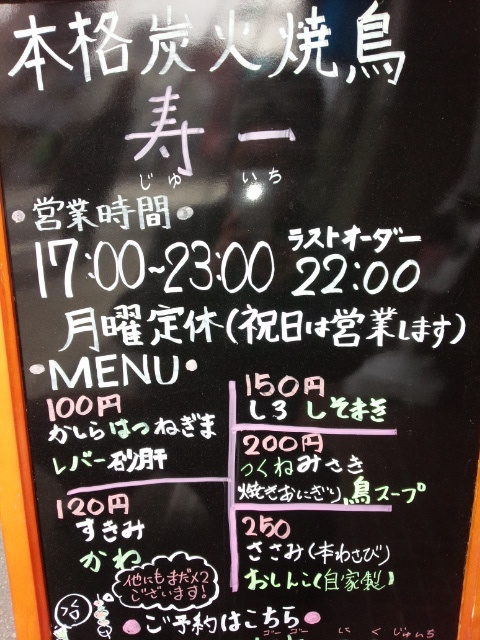 本格炭火焼鳥
寿一
じゅ いち
営業時間
17:00~23:00
ラストオーダー
22:00
月曜定休(祝日は営業します)
MENU
100円
かしら はつ ねぎま
レバー 砂肝
120円
すきみ
かわ
150円
しろ しそまき
200円
つくね みさき
焼きおにぎり 鳥スープ
250
ささみ(本わさび)
おしんこ(自家製)
他にもまだ×2
ございます!
ご予約はこちら
ゴー ゴー に く じゅいち